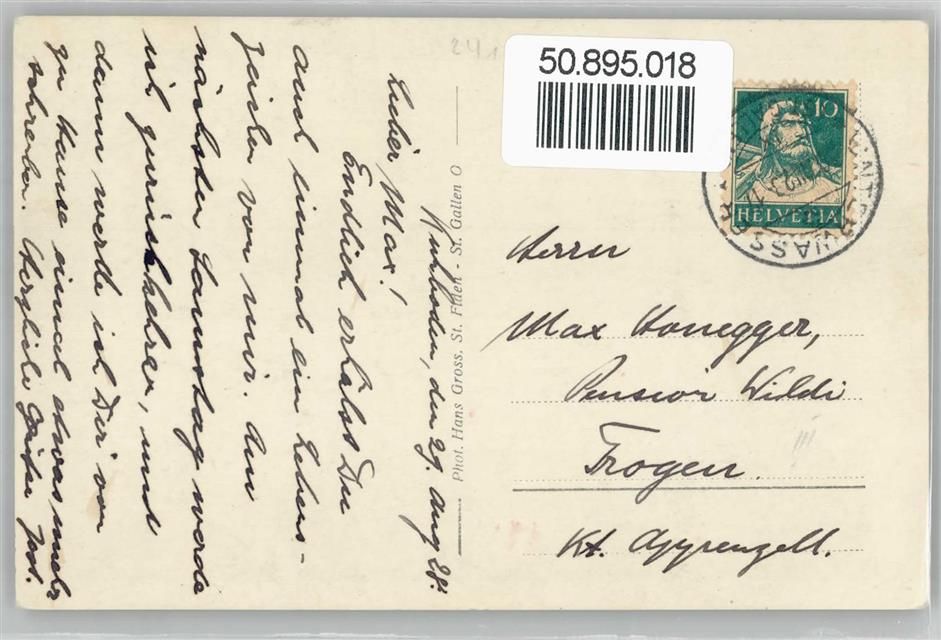 50.895.018
10
HELVETIA
Phot. Hans Gross, St. Fiden - St. Gallen O
den 29. Aug 28.
Lieber Max!
Endlich erhälst Du
auch einmal ein Lebens-
zeichen von mir. Am
nächsten Samstag werde
ich zurückkehren, und
dann werde ich Dir von
zu Hause einmal etwas mehr
schreiben. Herzliche Grüsse
Herrn
Max Honegger,
Pension Wildi
Trogen
Kt. Appenzell.